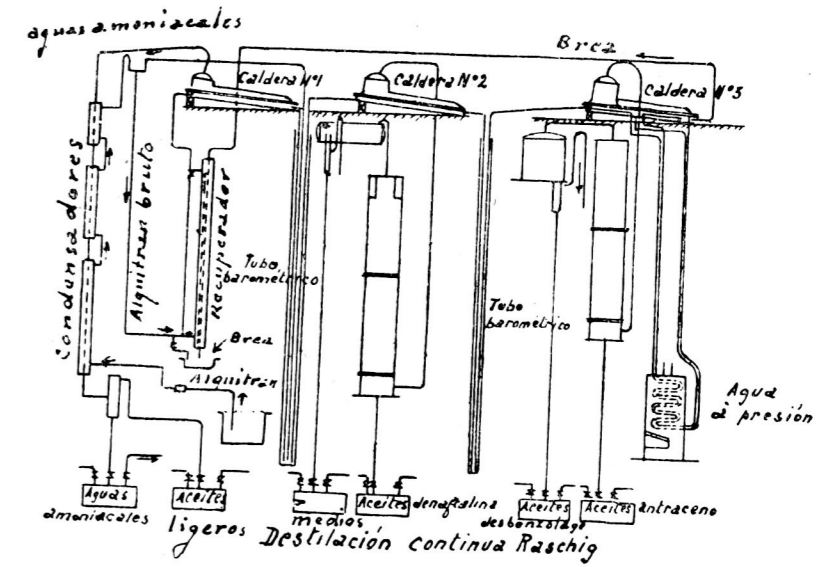 aguas amoniacales
Brea
Caldera Nº1
Caldera Nº2
Caldera Nº3
Condensadores
Alquitran bruto
Recuperador
Tubo
barométrico
Tubo
barométrico
Brea
Alquitrán
Agua
a presión
Aguas
amoniacales
Aceites
ligeros
medios
Aceites denaftalina
Aceites
desbenzolage
Aceites antraceno
Destilación continua Raschig